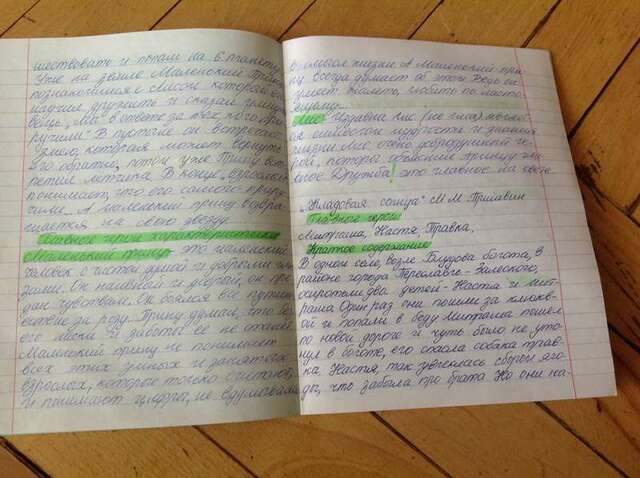 шествовать и попал на 6 планету.
Уже на Земле Маленький Принц
познакомился с Лисом который его
научил дружить и сказал умную
вещь „Мы в ответе за тех, кого при-
ручили" В пустыне он встретил
Змею, которая может вернуть
его обратно, потом уже Принц встр
ретил летчика. В конце
понимает, что его самого приру-
чили. А маленький принц возвра-
щается на свою звезду.
Главные герои
Маленький принц - это маленький
человек с чистой душой и добрыми
Он наивный и добрый, он пре-
дан чувствам. Он
за розу. Принц думал, что без
его ласки и заботы её не станет
Маленький принц не понимает
всех этих умных и занятых
взрослых, которые только считают
и понимают цифры, не вдумываясь
в смысл жизни. А Маленький прин-
ц всегда думает об этом. Ведь он
умеет жалеть, любить по насто-
ящему...
Лис Издавна лис (не лиса) являл-
ся символом мудрости и знания
жизни. Лис очень добродушный ге-
рой, который объяснил принцу
Дружба! это главное на свете
„Кладовая солнца" М.М. Пришвин
Главные герои
Митраша, Настя, Травка,
Краткое содержание
В одном селе, возле Блудова болота, в
районе города Переславль-Залесского,
осиротели двa детей - Настя и Мит-
раша Один раз они пошли за клюкв-
ой и попали в беду Митраша пошел
по новой дороге и чуть было не уто-
нул в болоте, его спасла собака трав-
ка. Настя так увлеклась сбором яго-
ды, что забыла про брата Но они на-